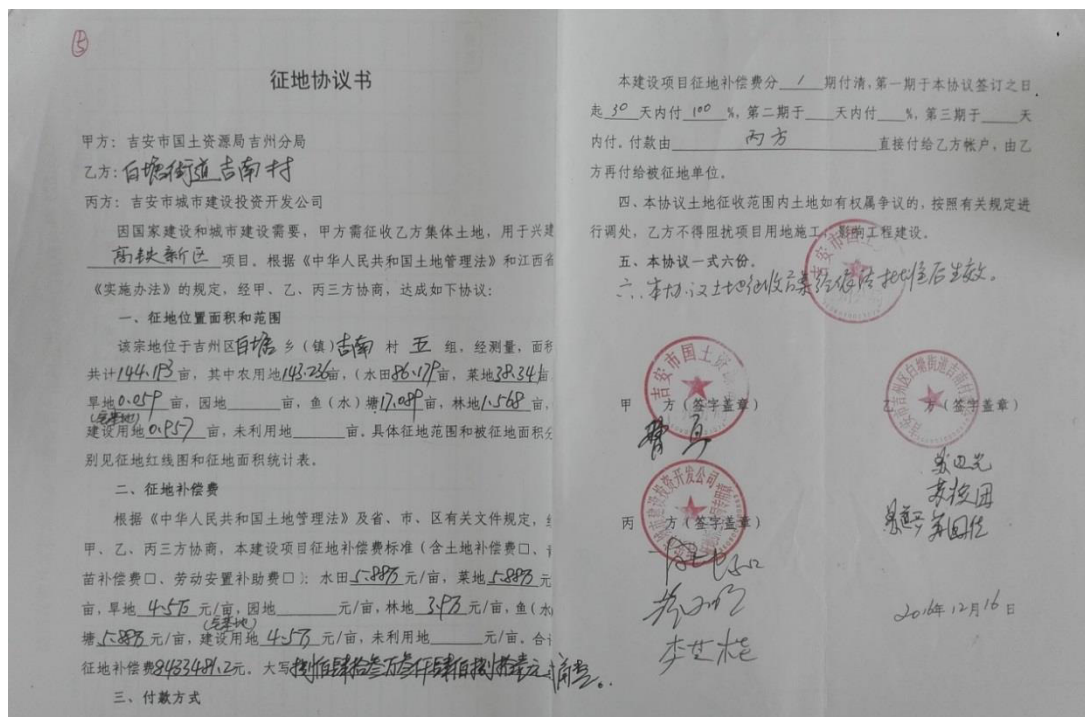 5
征地协议书
甲方：吉安市国土资源局吉州分局
乙方：白塘街道吉南村
丙方：吉安市城市建设投资开发公司
因国家建设和城市建设需要，甲方需征收乙方集体土地，用于兴建
高铁新区 项目。根据《中华人民共和国土地管理法》和江西省
《实施办法》的规定，经甲、乙、丙三方协商，达成如下协议：
一、征地位置面积和范围
该宗地位于吉州区白塘乡（镇）吉南 村 五 组，经测量，面积
共计144.193亩，其中农用地143.236亩，（水田86.179亩，菜地38.341亩
旱地0.059亩，园地____亩，鱼（水）塘17.089亩，林地1.568亩，
（宅基地）
建设用地0.957亩，未利用地____亩。具体征地范围和被征地面积分
别见征地红线图和征地面积统计表。
二、征地补偿费
根据《中华人民共和国土地管理法》及省、市、区有关文件规定，
甲、乙、丙三方协商，本建设项目征地补偿费标准（含土地补偿费□、
苗补偿费□、劳动安置补助费□）：水田5.88万元/亩，菜地5.88万元
亩，旱地4.5万元/亩，园地____元/亩，林地3.9万元/亩，鱼（水
（宅基地）
塘5.88万元/亩，建设用地4.5万元/亩，未利用地____元/亩。合计
征地补偿费8433481.2元。大写捌佰肆拾叁万叁仟肆佰捌拾壹元贰角整。
三、付款方式
本建设项目征地补偿费分 1 期付清，第一期于本协议签订之日
起 30 天内付 100 %，第二期于____天内付____%，第三期于____天
内付。付款由 丙方 直接付给乙方帐户，由乙
方再付给被征地单位。
四、本协议土地征收范围内土地如有权属争议的，按照有关规定进
行调处，乙方不得阻扰项目用地施工，影响工程建设。
五、本协议一式六份。
六、本协议土地征收方案经依法批准后生效。
吉安市国土资
甲 方（签字盖章）
吉州区白塘街道吉南村
乙 方（签字盖章）
市建设投资开发公司
丙 方（签字盖章）
2016年12月16日